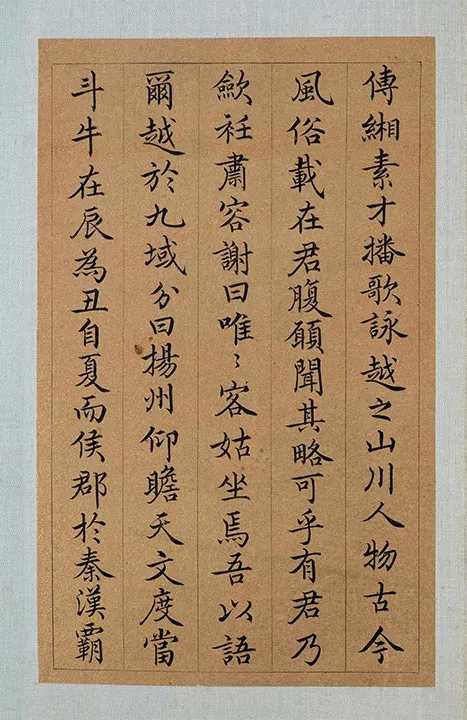 傳緗素才播歌詠越之山川人物古今
風俗載在君腹願聞其略可乎有君乃
歛衽肅容謝曰唯〻客姑坐焉吾以語
爾越於九域分曰揚州仰瞻天文度當
斗牛在辰為丑自夏而侯郡於秦漢霸